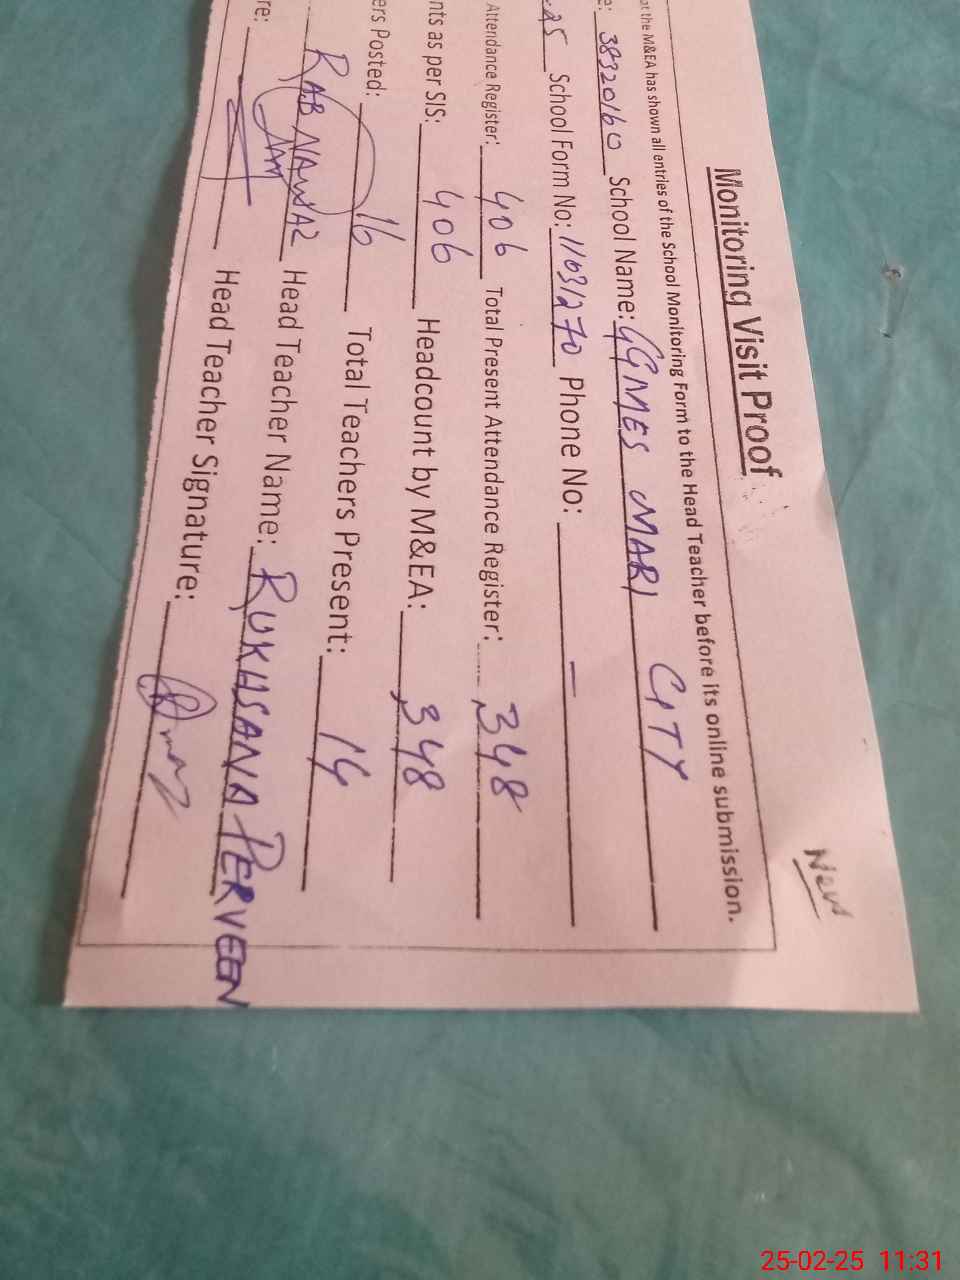 Monitoring Visit Proof
New
at the M&EA has shown all entries of the School Monitoring Form to the Head Teacher before its online submission.
e: 38320160 School Name: GGMES MARI CITY
25 School Form No: 11031270 Phone No: –
Attendance Register: 406 Total Present Attendance Register: 348
nts as per SIS: 406 Headcount by M&EA: 348
ers Posted: 16 Total Teachers Present: 14
RAB NAWAZ Head Teacher Name: RUKHSANA PERVEEN
re: Head Teacher Signature:
25-02-25 11:31